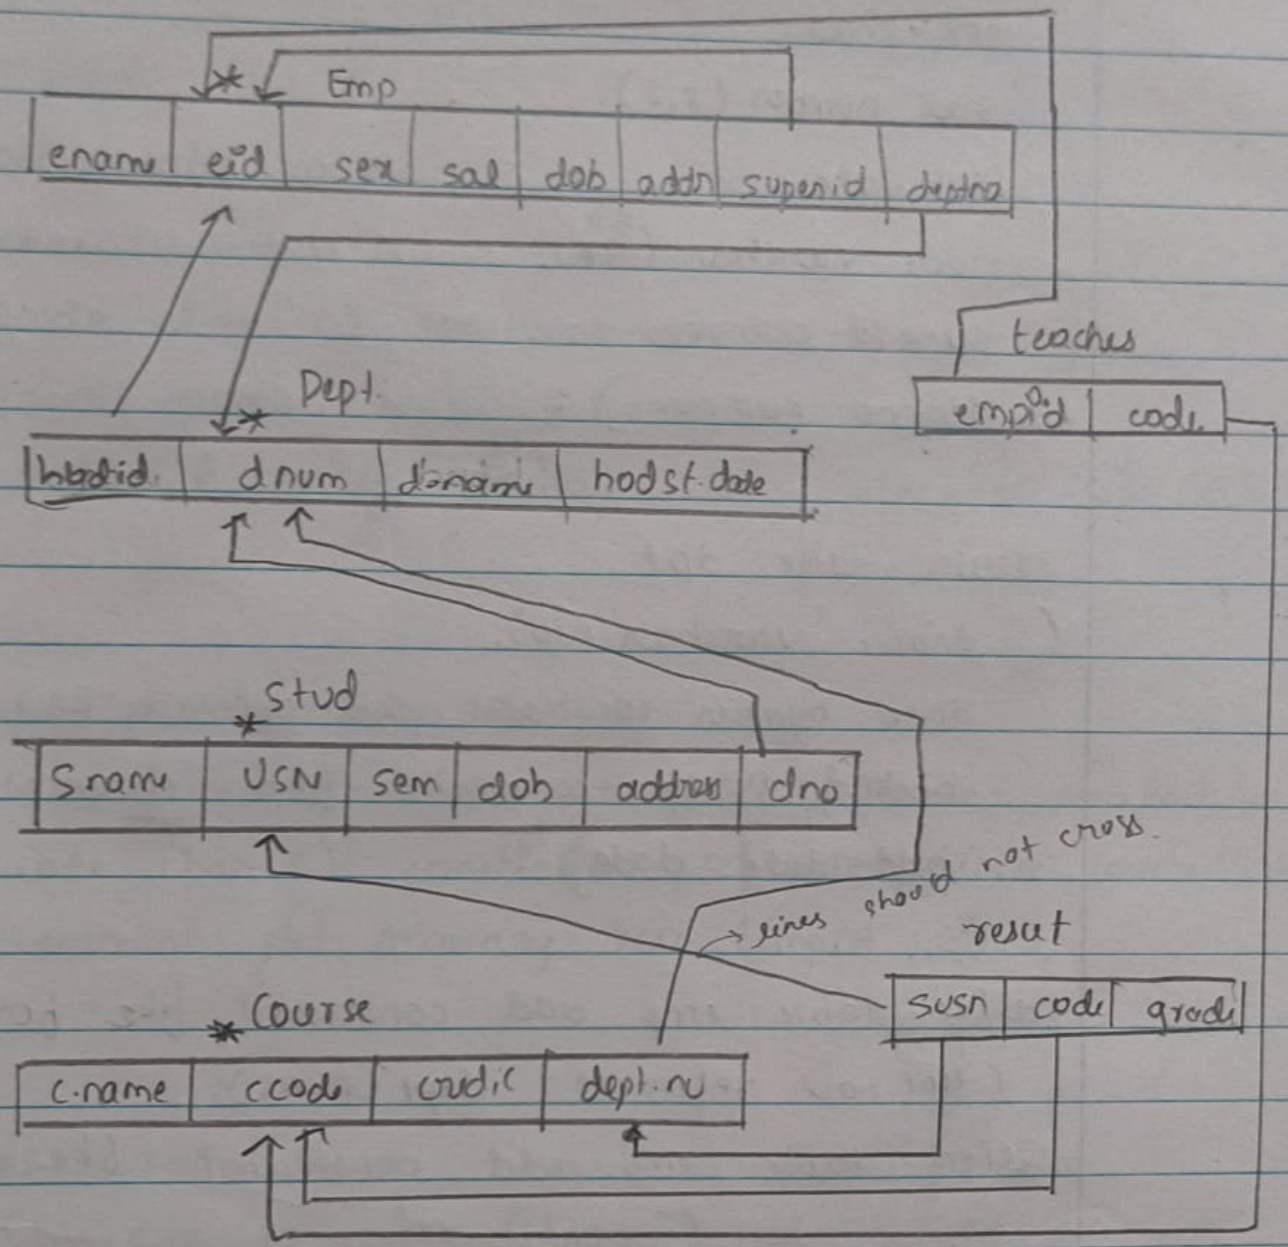 * Emp
ename eid sex sal dob addr superid deptno
teaches
empid code
Dept.
*
hodid. dnum d.name hodst.date
* Stud
Sname USN sem dob address dno
lines should not cross.
result
susn code grade
* Course
C.name ccode credit dept.no